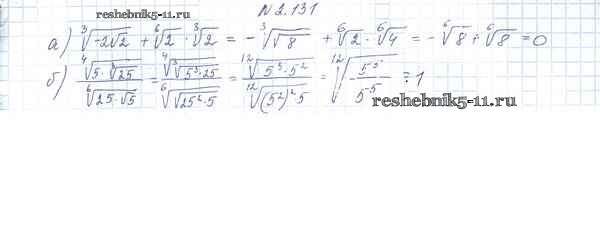 №2.131
reshebnik5-11.ru
а) ∛(-2√2) + ⁶√2 · ∛2 = - ∛(√8) + ⁶√2 · ⁶√4 = - ⁶√8 + ⁶√8 = 0
б) ⁴√(5·∛25) / ⁶√(25·√5) = ⁴√(∛(5³·25)) / ⁶√(√(25²·5)) = ¹²√(5³·5²) / ¹²√((5²)²·5) = ¹²√(5⁵ / 5⁻⁵) = 1
reshebnik5-11.ru